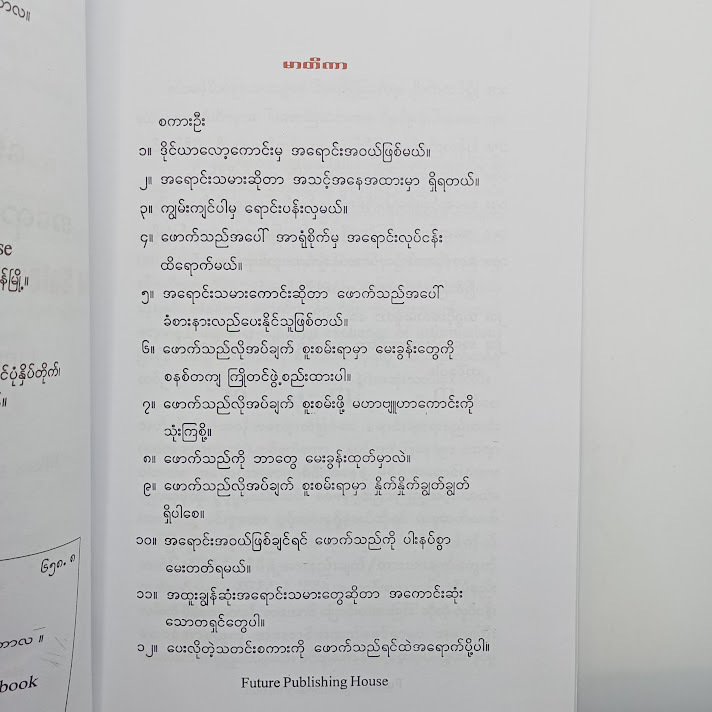 မာတိကာ
စကားဦး
၁။ ဒိုင်ယာလော့ကောင်းမှ အရောင်းအဝယ်ဖြစ်မယ်။
၂။ အရောင်းသမားဆိုတာ အသင့်အနေအထားမှာ ရှိရတယ်။
၃။ ကျွမ်းကျင်ပါမှ ရောင်းပန်းလှမယ်။
၄။ ဖောက်သည်အပေါ် အာရုံစိုက်မှ အရောင်းလုပ်ငန်း
ထိရောက်မယ်။
၅။ အရောင်းသမားကောင်းဆိုတာ ဖောက်သည်အပေါ်
ခံစားနားလည်ပေးနိုင်သူဖြစ်တယ်။
၆။ ဖောက်သည်လိုအပ်ချက် စူးစမ်းရာမှာ မေးခွန်းတွေကို
စနစ်တကျ ကြိုတင်ဖွဲ့စည်းထားပါ။
၇။ ဖောက်သည်လိုအပ်ချက် စူးစမ်းဖို့ မဟာဗျူဟာကောင်းကို
သုံးကြစို့။
၈။ ဖောက်သည်ကို ဘာတွေ မေးခွန်းထုတ်မှာလဲ။
၉။ ဖောက်သည်လိုအပ်ချက် စူးစမ်းရာမှာ နှိုက်နှိုက်ချွတ်ချွတ်
ရှိပါစေ။
၁၀။ အရောင်းအဝယ်ဖြစ်ချင်ရင် ဖောက်သည်ကို ပါးနပ်စွာ
မေးတတ်ရမယ်။
၁၁။ အထူးချွန်ဆုံးအရောင်းသမားတွေဆိုတာ အကောင်းဆုံး
သောတရှင်တွေပါ။
၁၂။ ပေးလိုတဲ့သတင်းစကားကို ဖောက်သည်ရင်ထဲအရောက်ပို့ပါ။
Future Publishing House
၆၅၈.၈
book